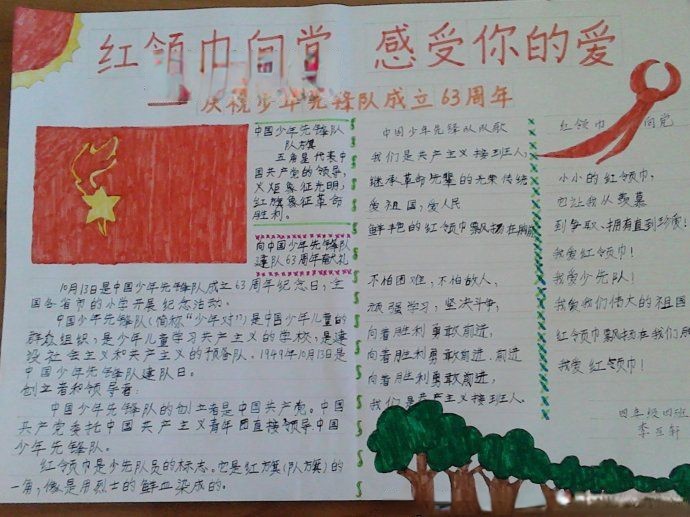 红领巾向党 感受你的爱
——庆祝少年先锋队成立63周年
中国少年先锋队
队旗
五角星代表中
国共产党的领导,
火炬象征光明,
红旗象征革命
胜利。
向中国少年先锋队
建队63周年献礼
10月13日是中国少年先锋队成立63周年纪念日,全
国各省市的小学开展纪念活动。
中国少年先锋队(简称“少年对”)是中国少年儿童的
群众组织,是少年儿童学习共产主义的学校,是建
设社会主义和共产主义的预备队,1949年10月13日是
中国少年先锋队建队日。
创立者和领导者:
中国少年先锋队的创立者是中国共产党。中国
共产党委托中国共产主义青年团直接领导中国
少年先锋队。
红领巾是少先队员的标志。它是红旗(队旗)的
一角,像是用烈士的鲜血染成的。
中国少年先锋队队歌
我们是共产主义接班人,
继承革命先辈的光荣传统
爱祖国,爱人民
鲜艳的红领巾飘扬在胸前
不怕困难,不怕敌人,
顽强学习,坚决斗争,
向着胜利勇敢前进,
向着胜利勇敢前进,前进
向着胜利勇敢前进,
我们是共产主义接班人.
红领巾 向党
小小的红领巾,
它让我从羡慕
到争取、拥有直到珍爱!
我爱红领巾!
我爱少先队!
我爱我们伟大的祖国
红领巾飘扬在我们胸
我爱红领巾!
四年级四班